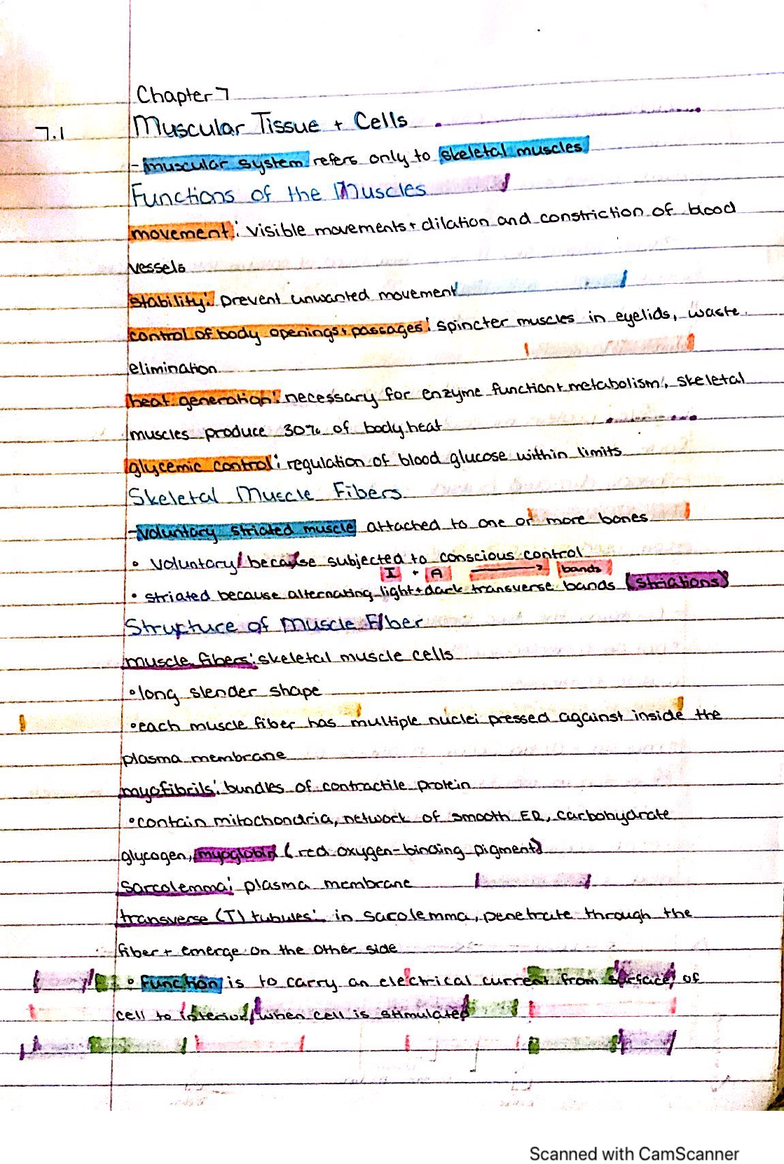 Chapter 7
7.1 Muscular Tissue + Cells
- muscular system refers only to skeletal muscles
Functions of the Muscles
movement: visible movements + dilation and constriction of blood
vessels
stability: prevent unwanted movement
control of body openings + passages: spincter muscles in eyelids, waste
elimination
heat generation: necessary for enzyme function + metabolism, skeletal
muscles produce 30% of body heat
glycemic control: regulation of blood glucose within limits
Skeletal Muscle Fibers
- voluntary striated muscle attached to one or more bones
• voluntary because subjected to conscious control
I + A → bands
• striated because alternating light + dark transverse bands (striations)
Structure of Muscle Fiber
muscle fibers: skeletal muscle cells
• long slender shape
• each muscle fiber has multiple nuclei pressed against inside the
plasma membrane
myofibrils: bundles of contractile protein
• contain mitochondria, network of smooth ER, carbohydrate
glycogen, myoglobin (red oxygen-binding pigment)
Sarcolemma: plasma membrane
transverse (T) tubules: in sacolemma, penetrate through the
fiber + emerge on the other side
• function is to carry an electrical current from surface of
cell to interior when cell is stimulated
Scanned with CamScanner